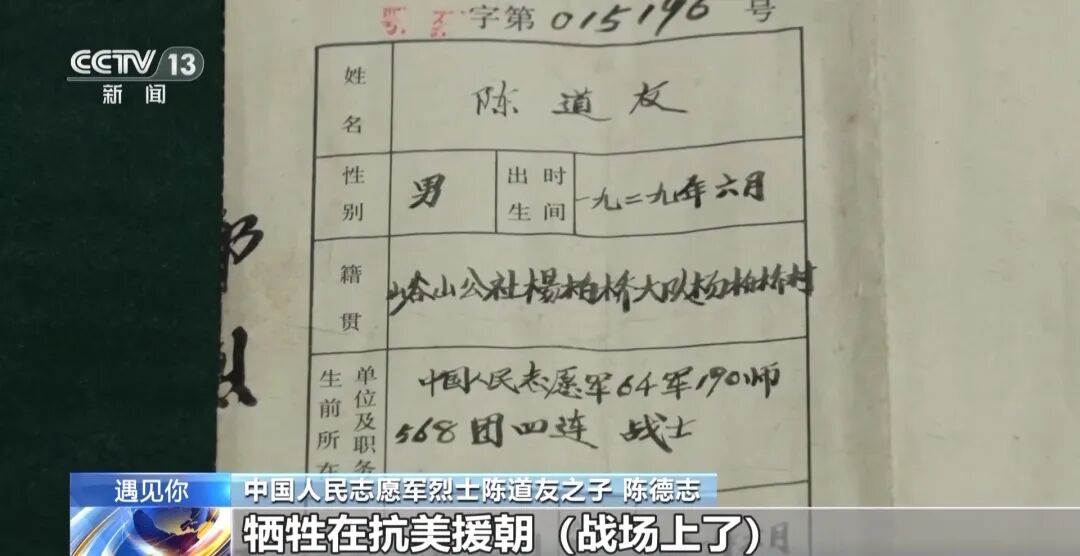 字第015196号
CCTV 13
新闻
姓名
陈道友
性别
男
出生时间
一九二九年六月
籍贯
峪山公社杨柏桥大队杨柏桥村
生前所在单位及职务
中国人民志愿军64军190师
568团四连 战士
遇见你
中国人民志愿军烈士陈道友之子 陈德志
牺牲在抗美援朝（战场上了）
月